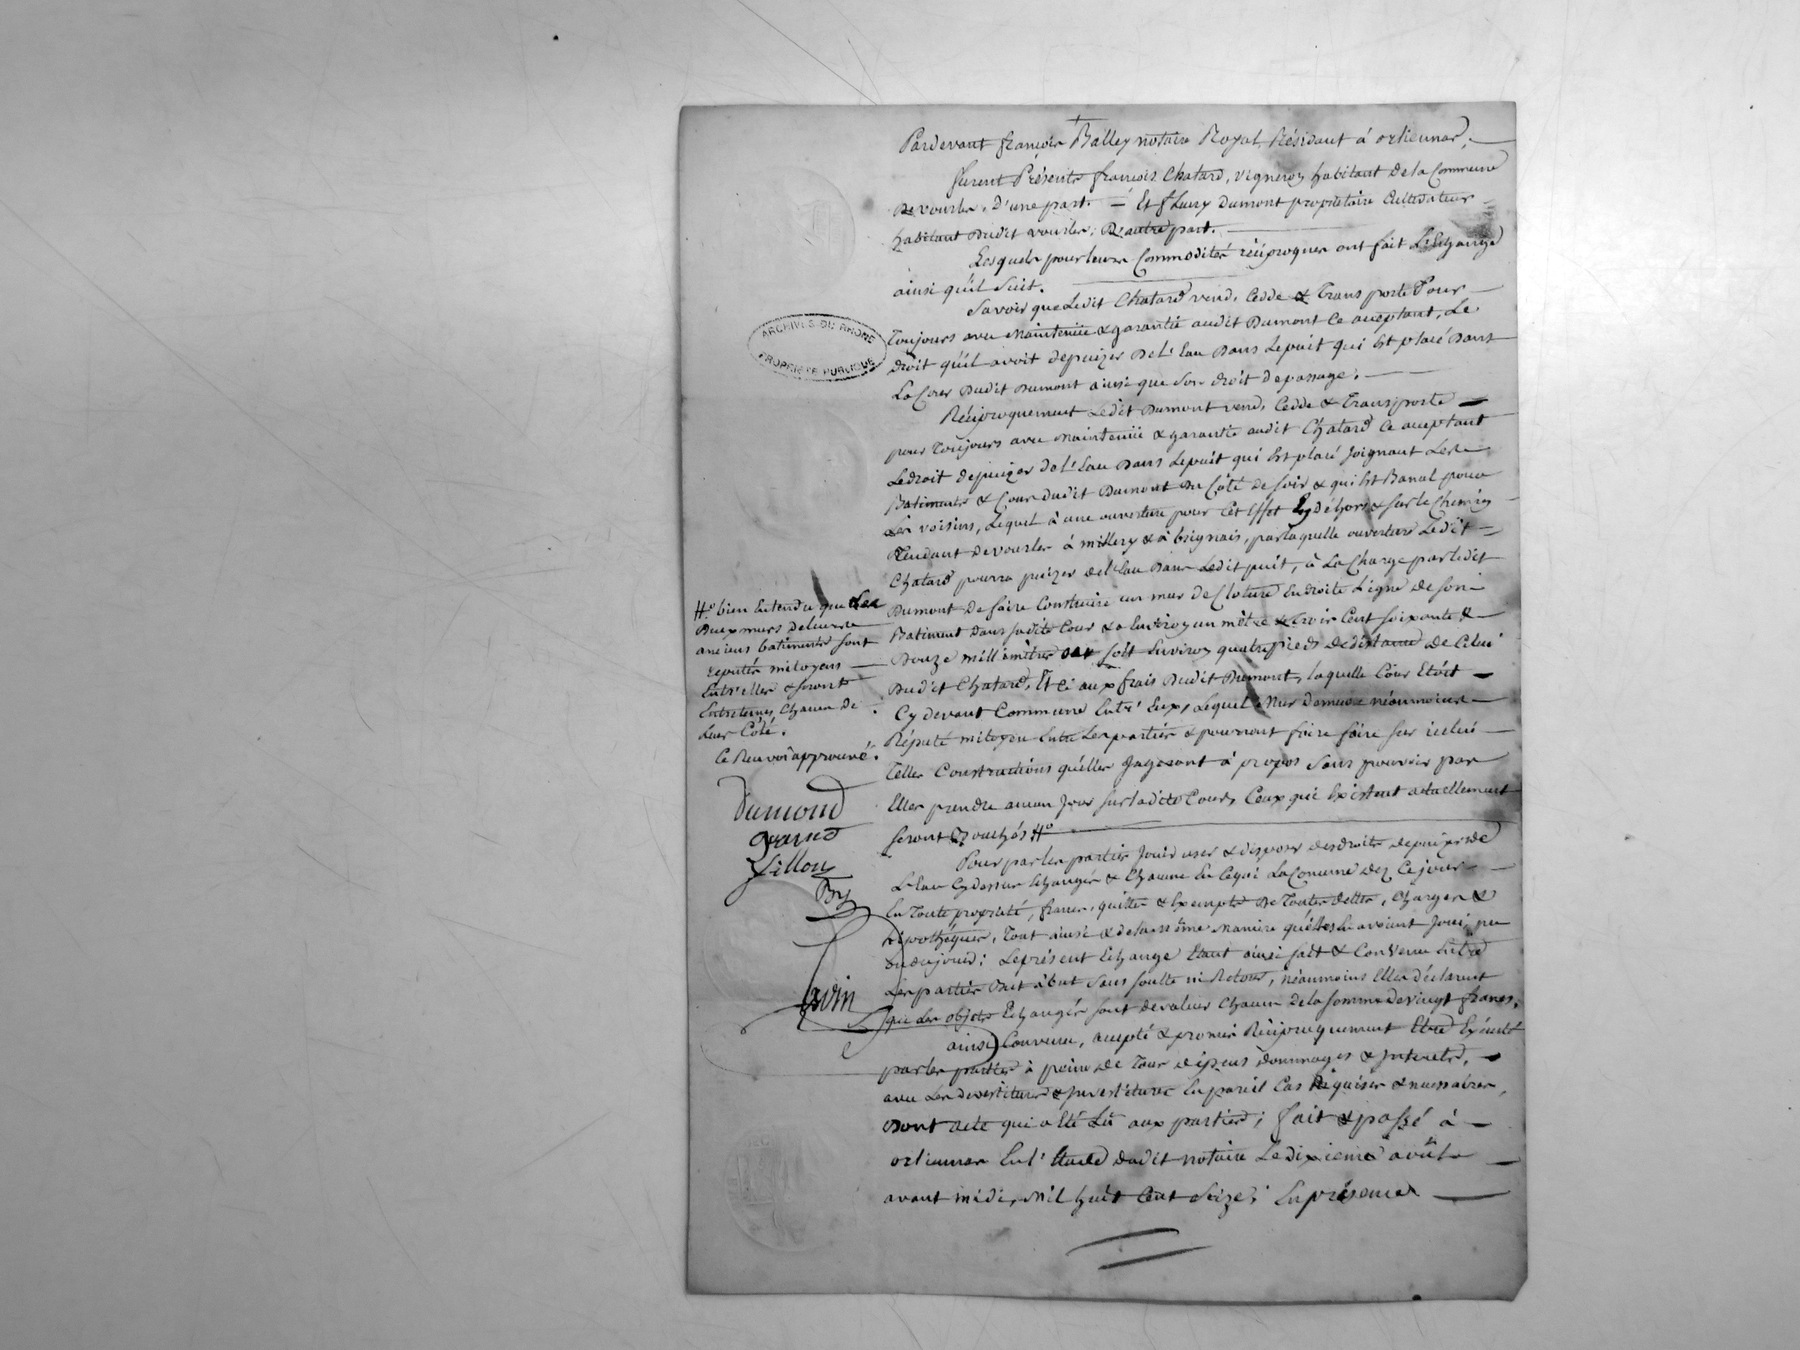 Pardevant françois Balley notaire Royal, Résidant à orliénas,
furent Présents françois Chatard, vigneron habitant de la Commune
de vourles, d'une part. Et fleury Dumont propriétaire Cultivateur
habitant dudit vourles, D'autre part.
Lesquels pour leurs Commodités réciproques ont fait L'Echange
ainsi qu'il Suit.
Savoir que Ledit Chatard vend, Cedde & Transporte Pour
Toujours avec maintenüe & garantie audit Dumont Ce aceptant, Le
Droit qu'il avoit depuizer de L'Eau Dans Lepuit qui Est placé Dans
La Cour Dudit Dumont ainsi que Son droit depassage.
Réciproquement Ledit Dumont vend, Cedde & Transporte
pour Toujours avec maintenüe & garantie audit Chatard Ce aceptant
Ledroit depuizer de L'Eau Dans Lepuit qui Est placé Joignant Les
Batiments & Cour dudit Dumont Du Côté de Soir & qui Est Banal pour
Les voisins, Lequel à une ouverture pour Cet Effet En déhors & sur le Chemin
Tendant de vourles à millery & à brignais, par laquelle ouverture Ledit
Chatard pourra puizer de L'Eau Dans Ledit puit, à La Charge par ledit
Dumont De faire Construire un mur de Cloture En droite Ligne de son
Batiment Dans sadite Cour & a Environ un mètre & trois Cent soixante &
Douze millimètres soit Environ quatre pieds de distance de Celui
Dudit Chatard, Et Ce aux frais Dudit Dumont, laquelle Cour Etoit
Cy devant Commune Entr' Eux, Lequel Mur demeure néanmoins
Réputé mitoyen Entre Les parties & pourront faire faire sur icelui
Telles Constructions qu'elles Jugeront à propos Sans pouvoir par
Elles prendre aucun Jour sur ladite Cour, Ceux qui Existent actuellement
Seront Bouchés #°
Pour par les parties Jouir user & disposer des droits de puizer de
L'Eau Cy dessus Echangés & Chacune En Cequi La Concerne dez Ce jour
En Toute propriété, francs, quittes & Exempts De Toutes dettes, Charges &
hipothéques, Tout ainsi & de la même maniere qu'elles En avoient Joui, pu
ou du jouir; Le présent Echange Etant ainsi fait & Convenu Entre
Les parties but à but Sans soulte ni Retour, néanmoins Elles déclarent
que Les objets Echangés sont de valeur Chacun de la somme de vingt francs.
ainsi Convenu, acepté & promis Réciproquement Etre Exécuté
par les parties à peine de Tous dépens dommages & Interets,
avec Les devestitures & Investitures En pareil Cas Requises & nécessaires,
Dont acte qui a Eté Lû aux parties; fait & passé à
orliénas En L'Etude dudit notaire Le dixieme août
avant midi, Mil huit Cent Seize; En présence
ARCHIVES DU RHÔNE
PROPRIÉTÉ PUBLIQUE
#° bien Entendu que Les
Deux murs de leurs
anciens batiments sont
reputés mitoyens
Entr'elles & seront
Entretenus Chacun De
Leur Côté.
Ce Renvoi approuvé.
Dumond